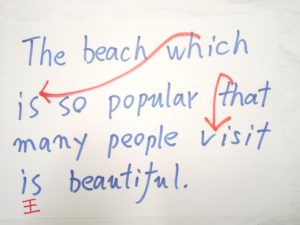 The beach which
is so popular that
many people visit
is beautiful.
王